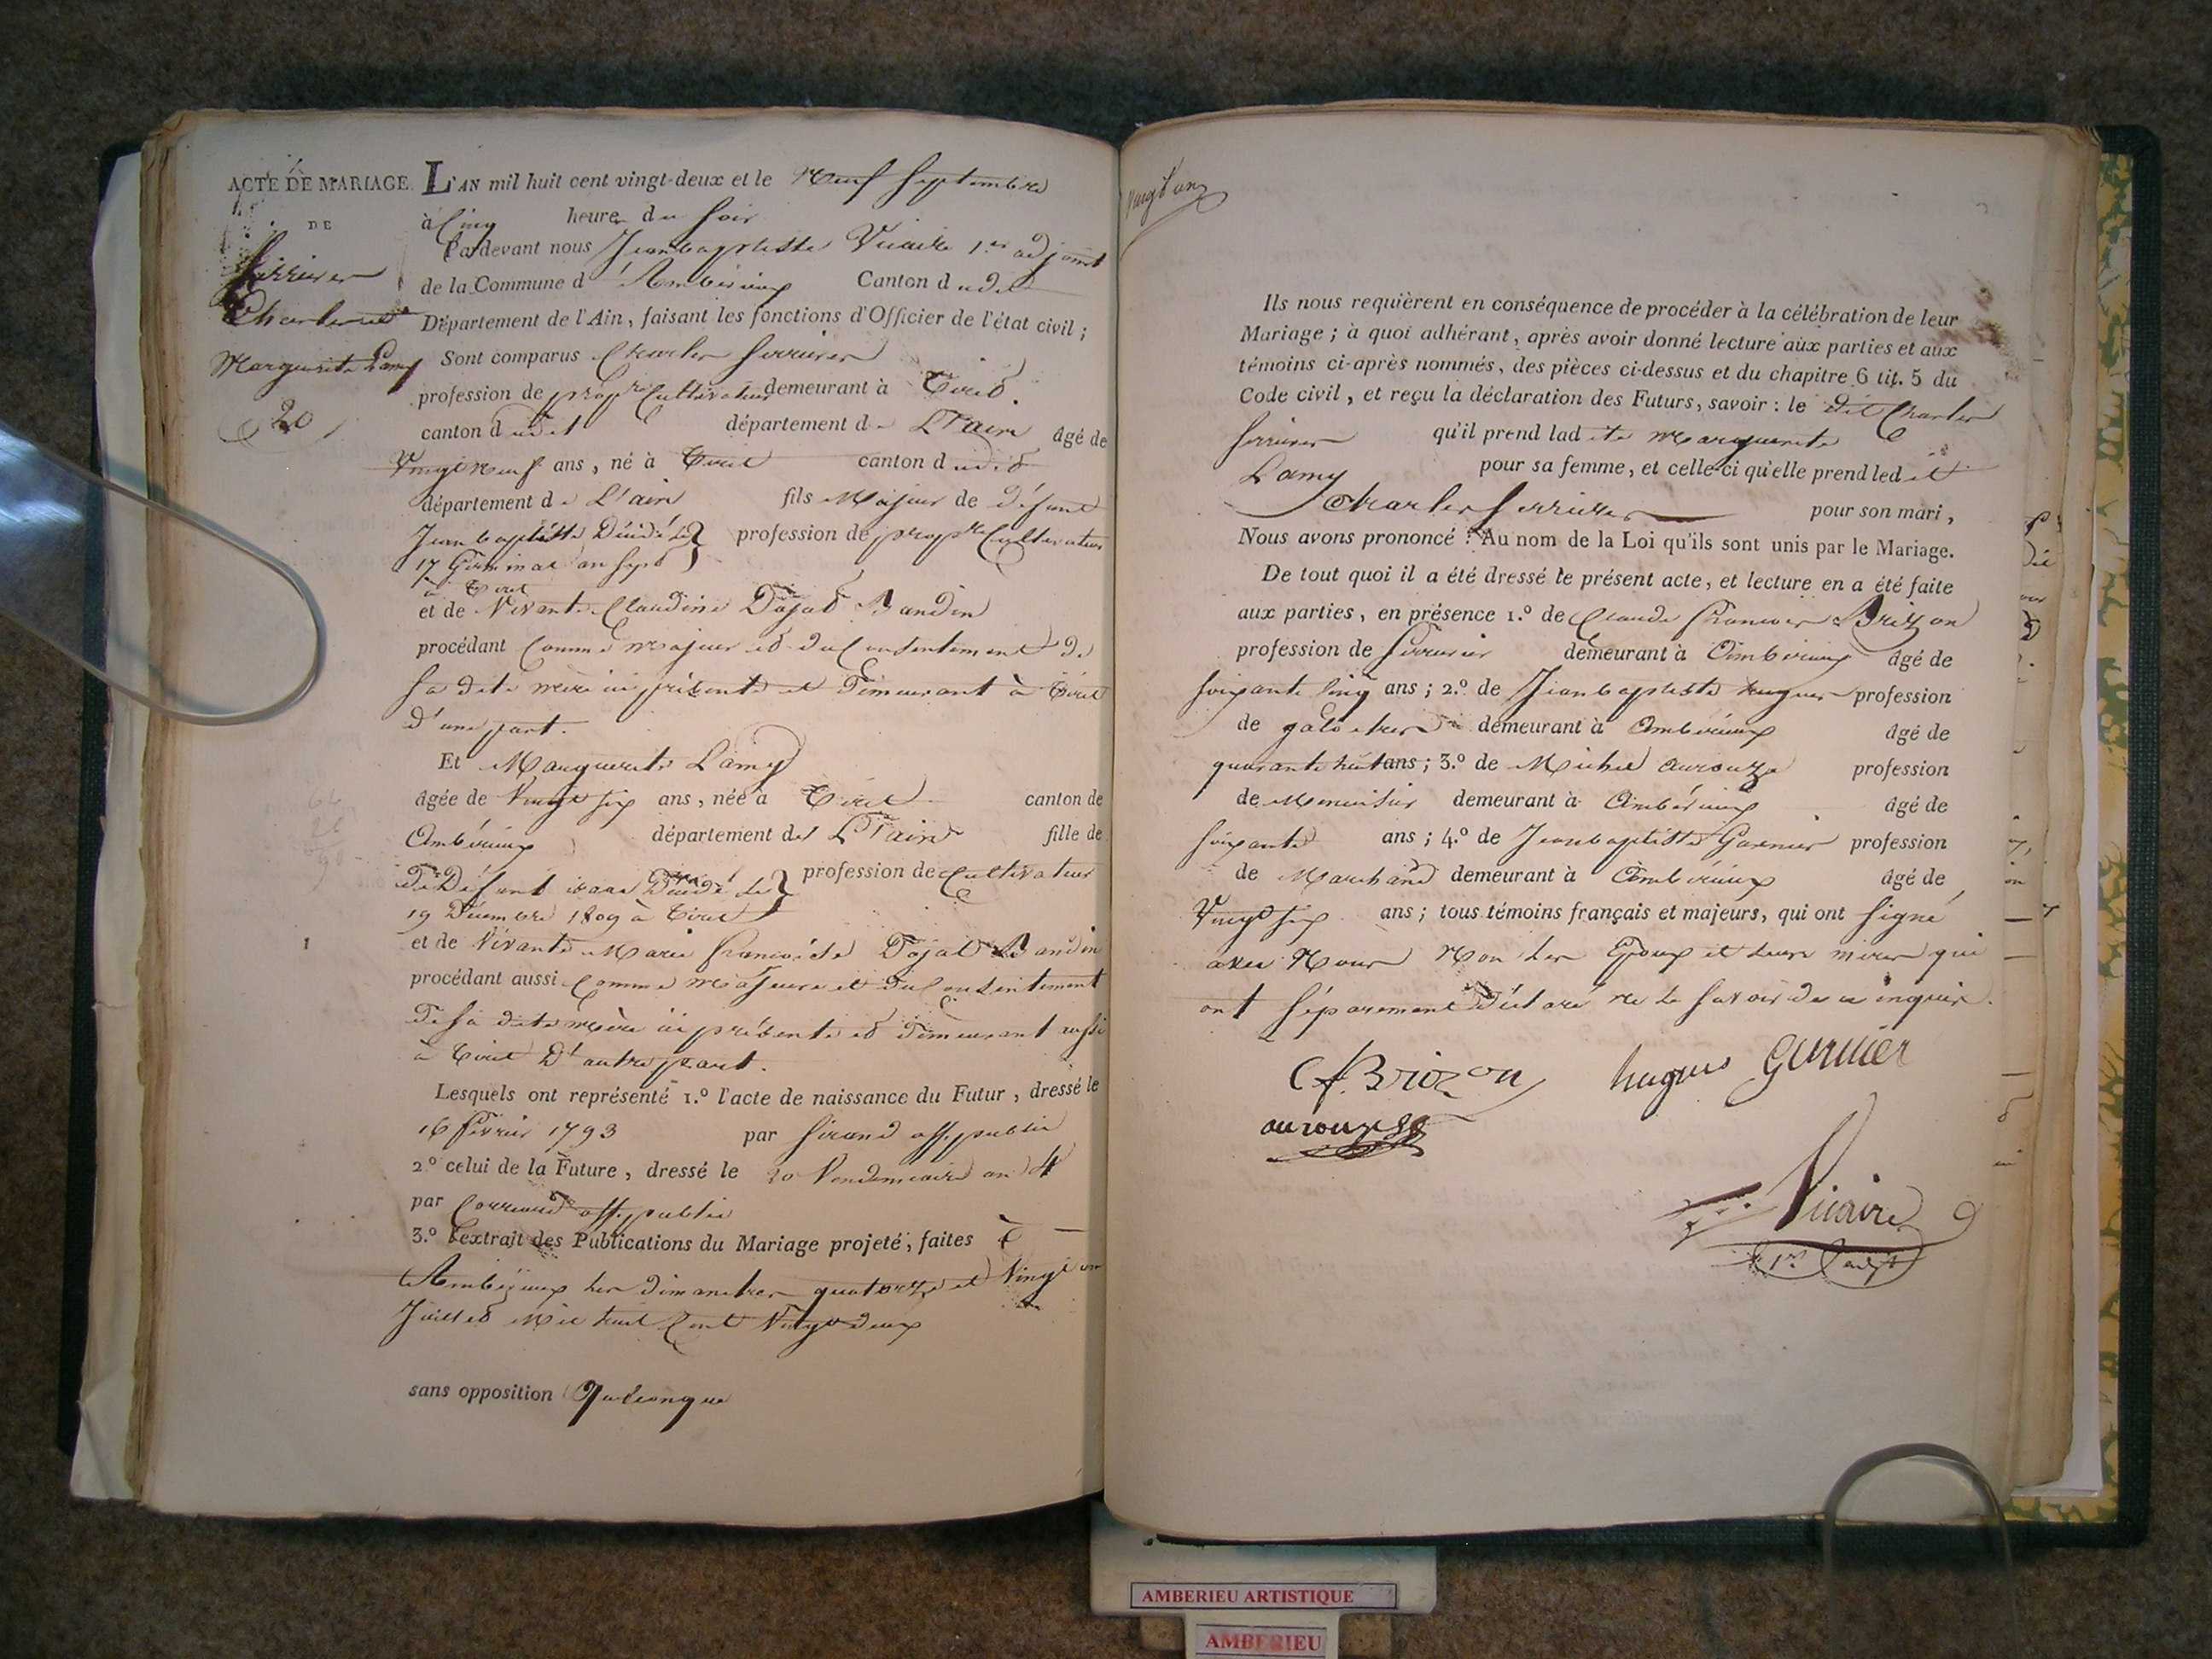 ACTE DE MARIAGE
DE
Serrieres
Charles et
Marguerite Lamy
20
L'AN mil huit cent vingt-deux et le neuf Septembre
à Cinq heures du Soir
Pardevant nous Jeanbaptiste Vicaire 1er adjoint
de la Commune d'Ambérieux Canton dudit
Département de l'Ain, faisant les fonctions d'Officier de l'état civil;
Sont comparus Charles Serrieres
profession de propre Cultivateur demeurant à Tiret
canton dudit département de L'ain âgé de
Vingt neuf ans, né à Tiret canton dudit
département de L'ain fils Majeur de défunt
Jeanbaptiste Décédé le profession de propre Cultivateur
17 Germinal an sept
à Tiret
et de Vivante Claudine Dojat Bandin
procédant Comme majeur et du Consentement de
sa dite mère ici présente et demeurant à Tiret
d'une part.
Et Marguerite Lamy
âgée de Vingt six ans, née à Tiret canton de
Ambérieux département de L'ain fille de
De Défunt Décédé le profession de Cultivateur
19 Décembre 1809 à Tiret
et de Vivante Marie francoise Dojat Bandin
procédant aussi Comme majeure et du Consentement
de sa dite mère ici présente et demeurant aussi
à Tiret D'autre part.
Lesquels ont représenté 1.º l'acte de naissance du Futur, dressé le
16 février 1793 par Sirand off. public
2º celui de la Future, dressé le 20 Vendemiaire an 4
par off. public
3.º l'extrait des Publications du Mariage projeté, faites à
Ambérieux les dimanches quatorze et Vingt un
Juillet Mil huit Cent Vingt deux
sans opposition Quelconque
Vingt un
Ils nous requièrent en conséquence de procéder à la célébration de leur
Mariage; à quoi adhérant, après avoir donné lecture aux parties et aux
témoins ci-après nommés, des pièces ci-dessus et du chapitre 6 tit. 5 du
Code civil, et reçu la déclaration des Futurs, savoir: le dit Charles
Serrieres qu'il prend ladite Marguerite
Lamy pour sa femme, et celle-ci qu'elle prend ledit
Charles Serrieres pour son mari,
Nous avons prononcé: Au nom de la Loi qu'ils sont unis par le Mariage.
De tout quoi il a été dressé le présent acte, et lecture en a été faite
aux parties, en présence 1.º de Claude francois Brizon
profession de Serrurier demeurant à Ambérieux âgé de
soixante cinq ans; 2.º de Jeanbaptiste hugues profession
de demeurant à Ambérieux âgé de
quarante huit ans; 3.º de Michel aurouze profession
de Menuisier demeurant à Ambérieux âgé de
soixante ans; 4.º de Jeanbaptiste Garnier profession
de Marchand demeurant à Ambérieux âgé de
Vingt six ans; tous témoins français et majeurs, qui ont signé
avec Nous Non les Epoux et leurs mères qui
ont séparement déclaré ne le savoir de ce enquis.
Cf. Brizon hugues Garnier
aurouze
Vicaire
1er adjt
AMBERIEU ARTISTIQUE
AMBERIEU